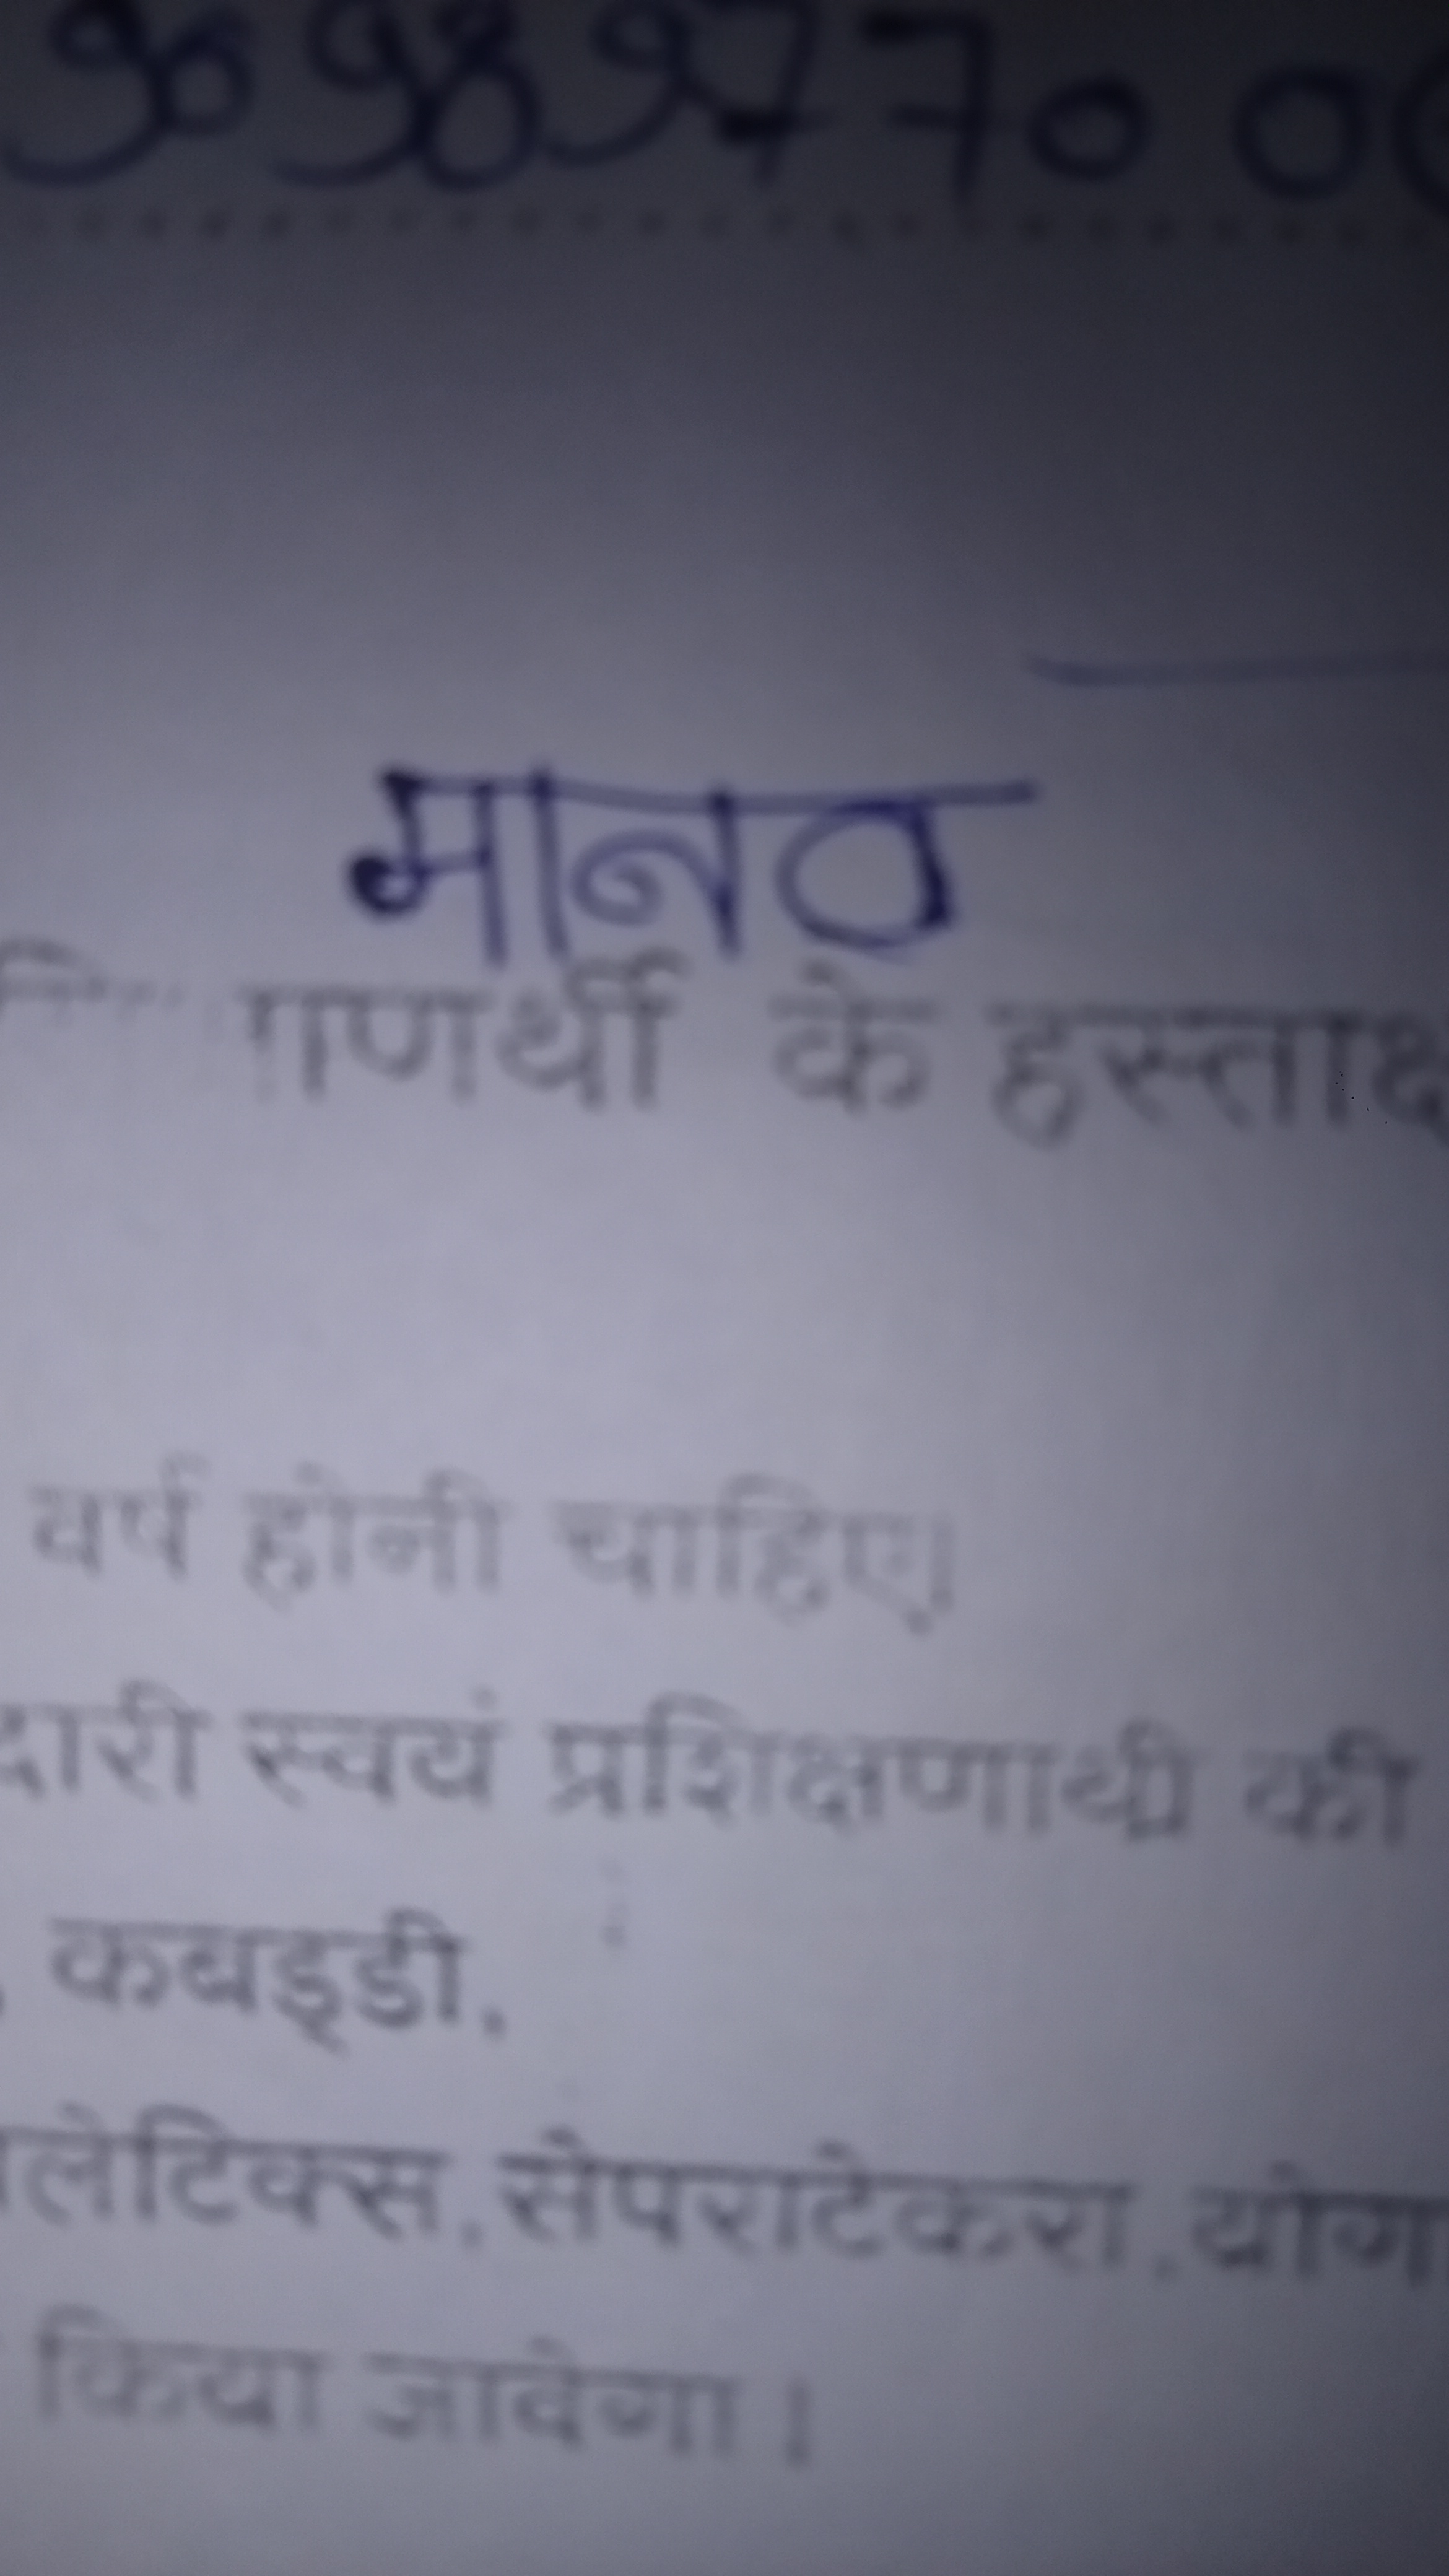 मानव
के हस्ताक्ष
वर्ष होनी चाहिए।
दारी स्वयं प्रशिक्षणार्थी की
कबड्डी,
लेटिक्स, सेपराटेकरा, योग
किया जावेगा।